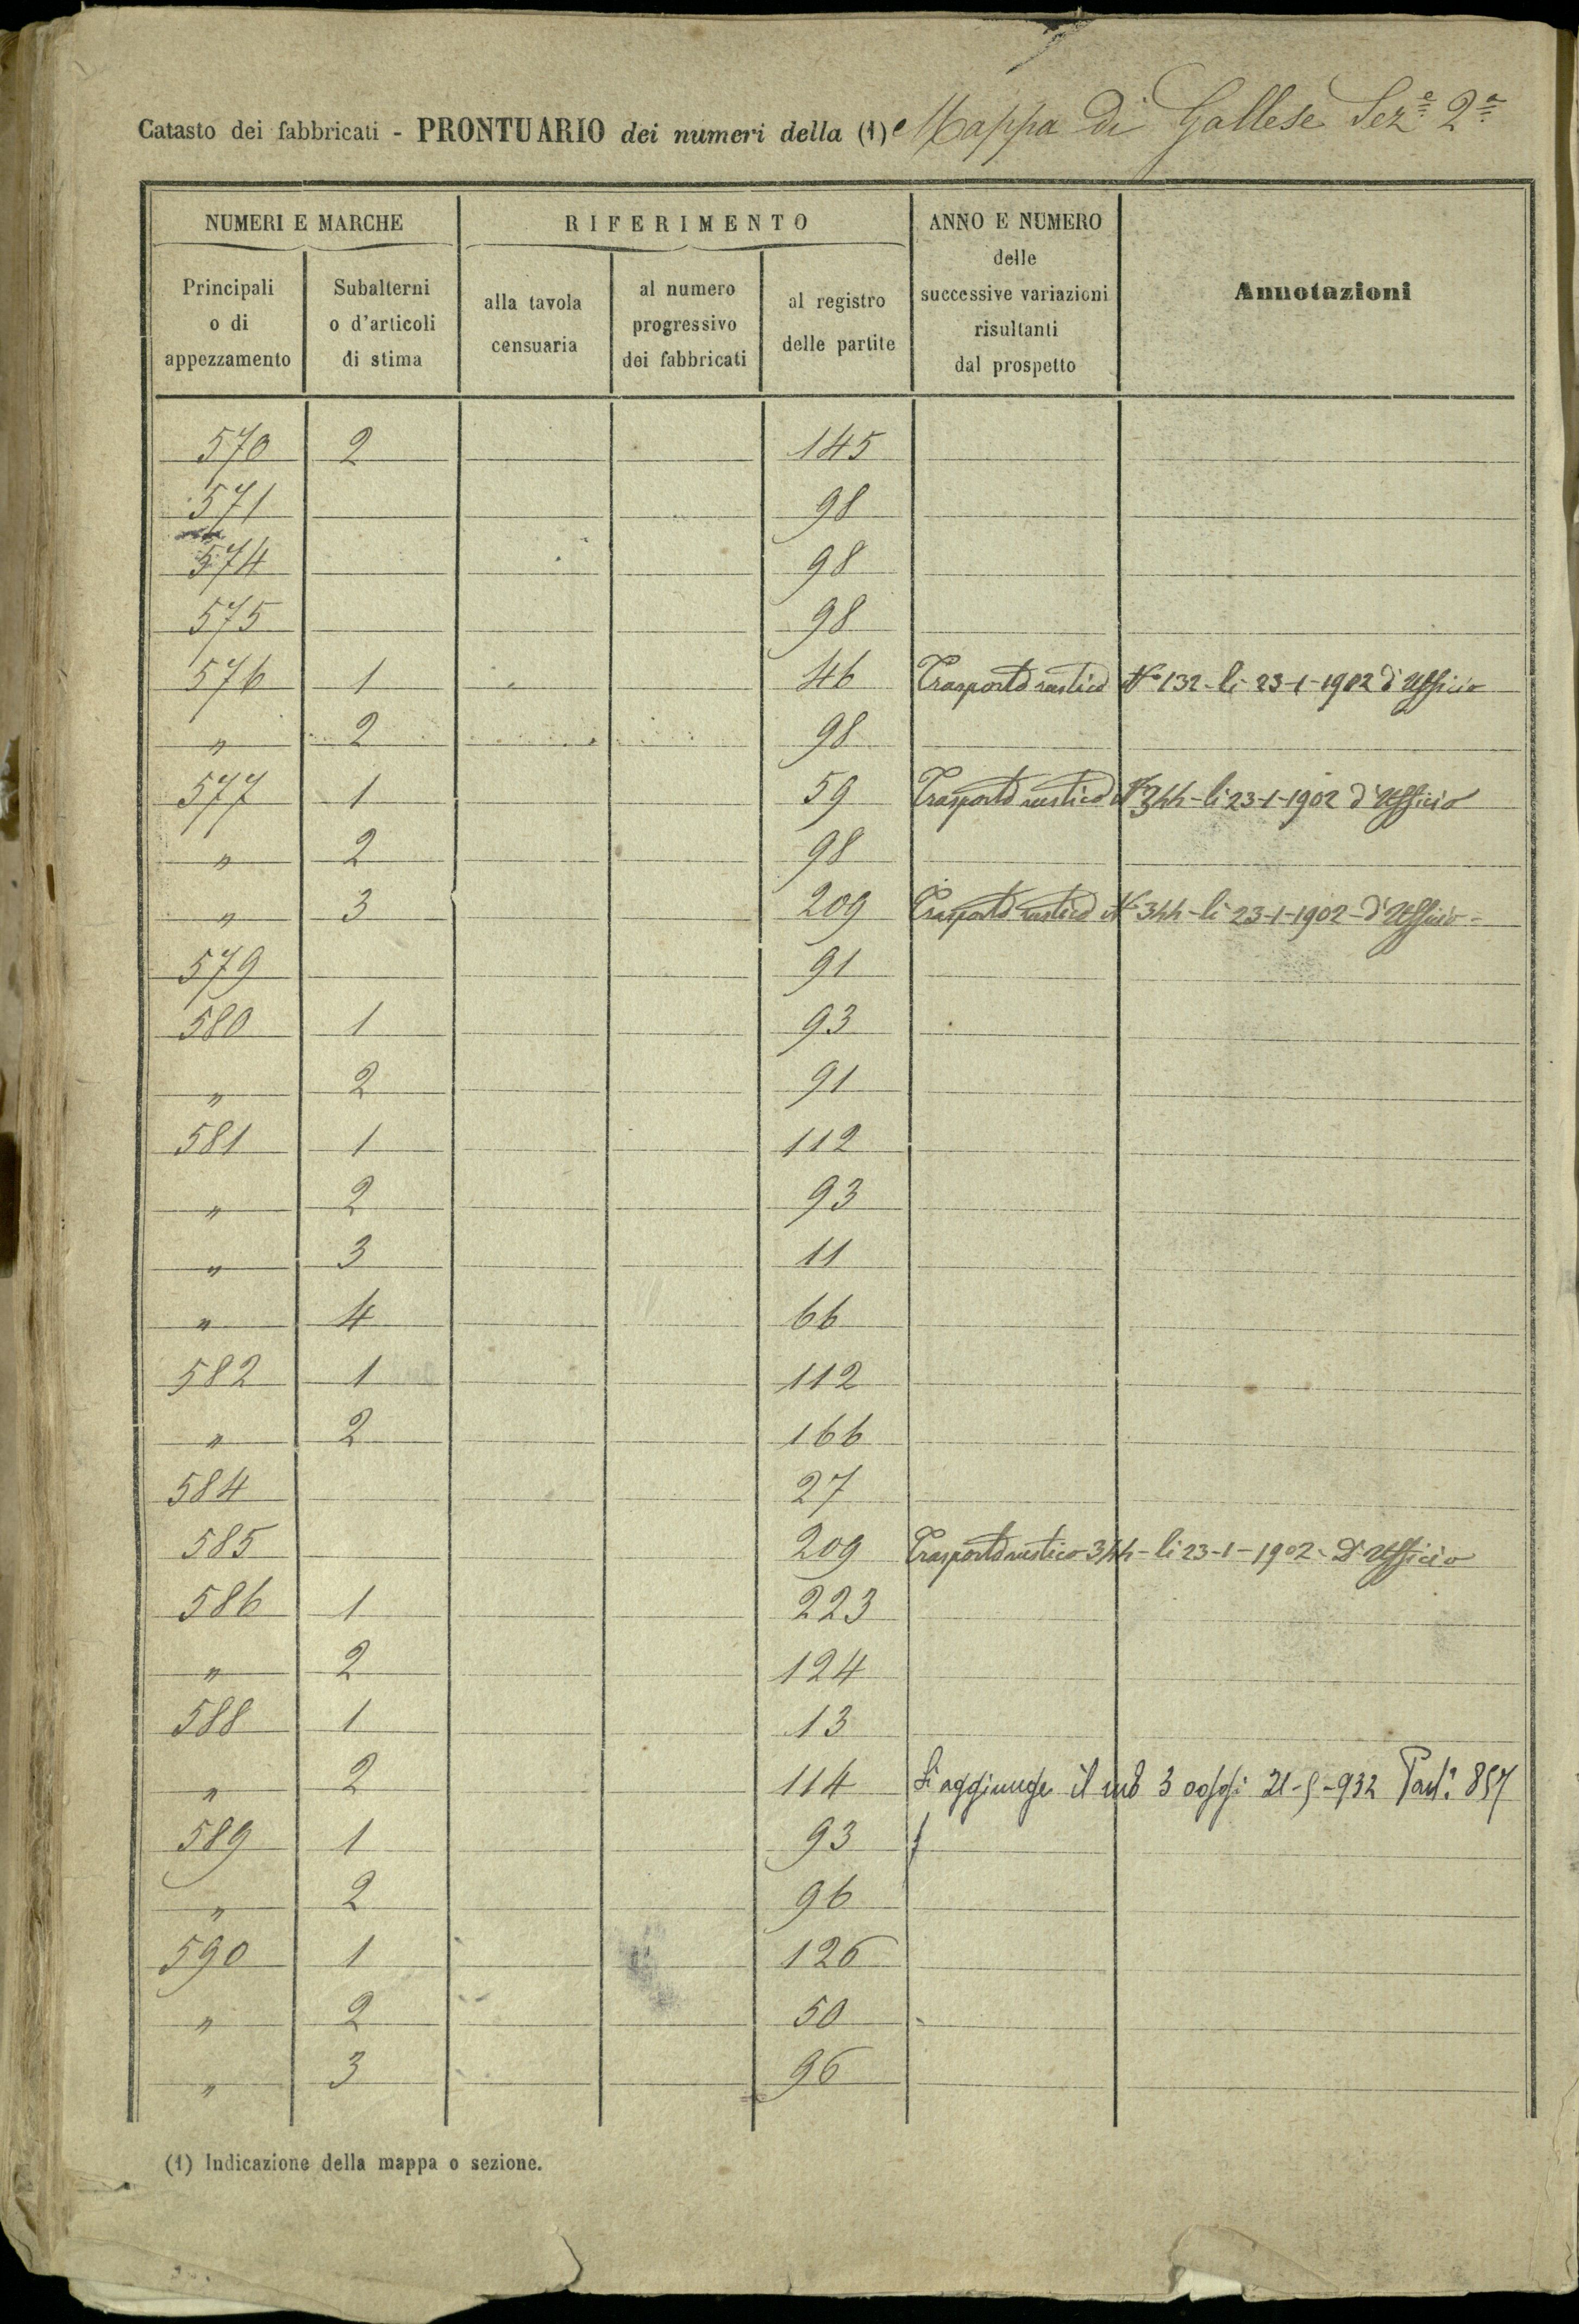 Catasto dei fabbricati - PRONTUARIO dei numeri della (1) Mappa di Gallese Sez.e 2a
NUMERI E MARCHE RIFERIMENTO ANNO E NUMERO delle successive variazioni risultanti dal prospetto Annotazioni
Principali o di appezzamento Subalterni o d'articoli di stima alla tavola censuaria al numero progressivo dei fabbricati al registro delle partite
570 2 145
571 98
574 98
575 98
576 1 46 Trasporto rustico No 132 - li 23-1-1902 d'Ufficio
" 2 98
577 1 59 Trasporto rustico No 344 - li 23-1-1902 d'Ufficio
" 2 98
" 3 209 Trasporto rustico No 344 - li 23-1-1902 - d'Ufficio -
579 91
580 1 93
" 2 91
581 1 112
" 2 93
" 3 11
" 4 66
582 1 112
" 2 166
584 27
585 209 Trasporto rustico 344 - li 23-1-1902 - D'Ufficio
586 1 223
" 2 124
588 1 13
" 2 114 Si aggiunge il sub 3 oggi 21-5-932 Part. 857
589 1 93
" 2 96
590 1 126
" 2 50
" 3 96
(1) Indicazione della mappa o sezione.